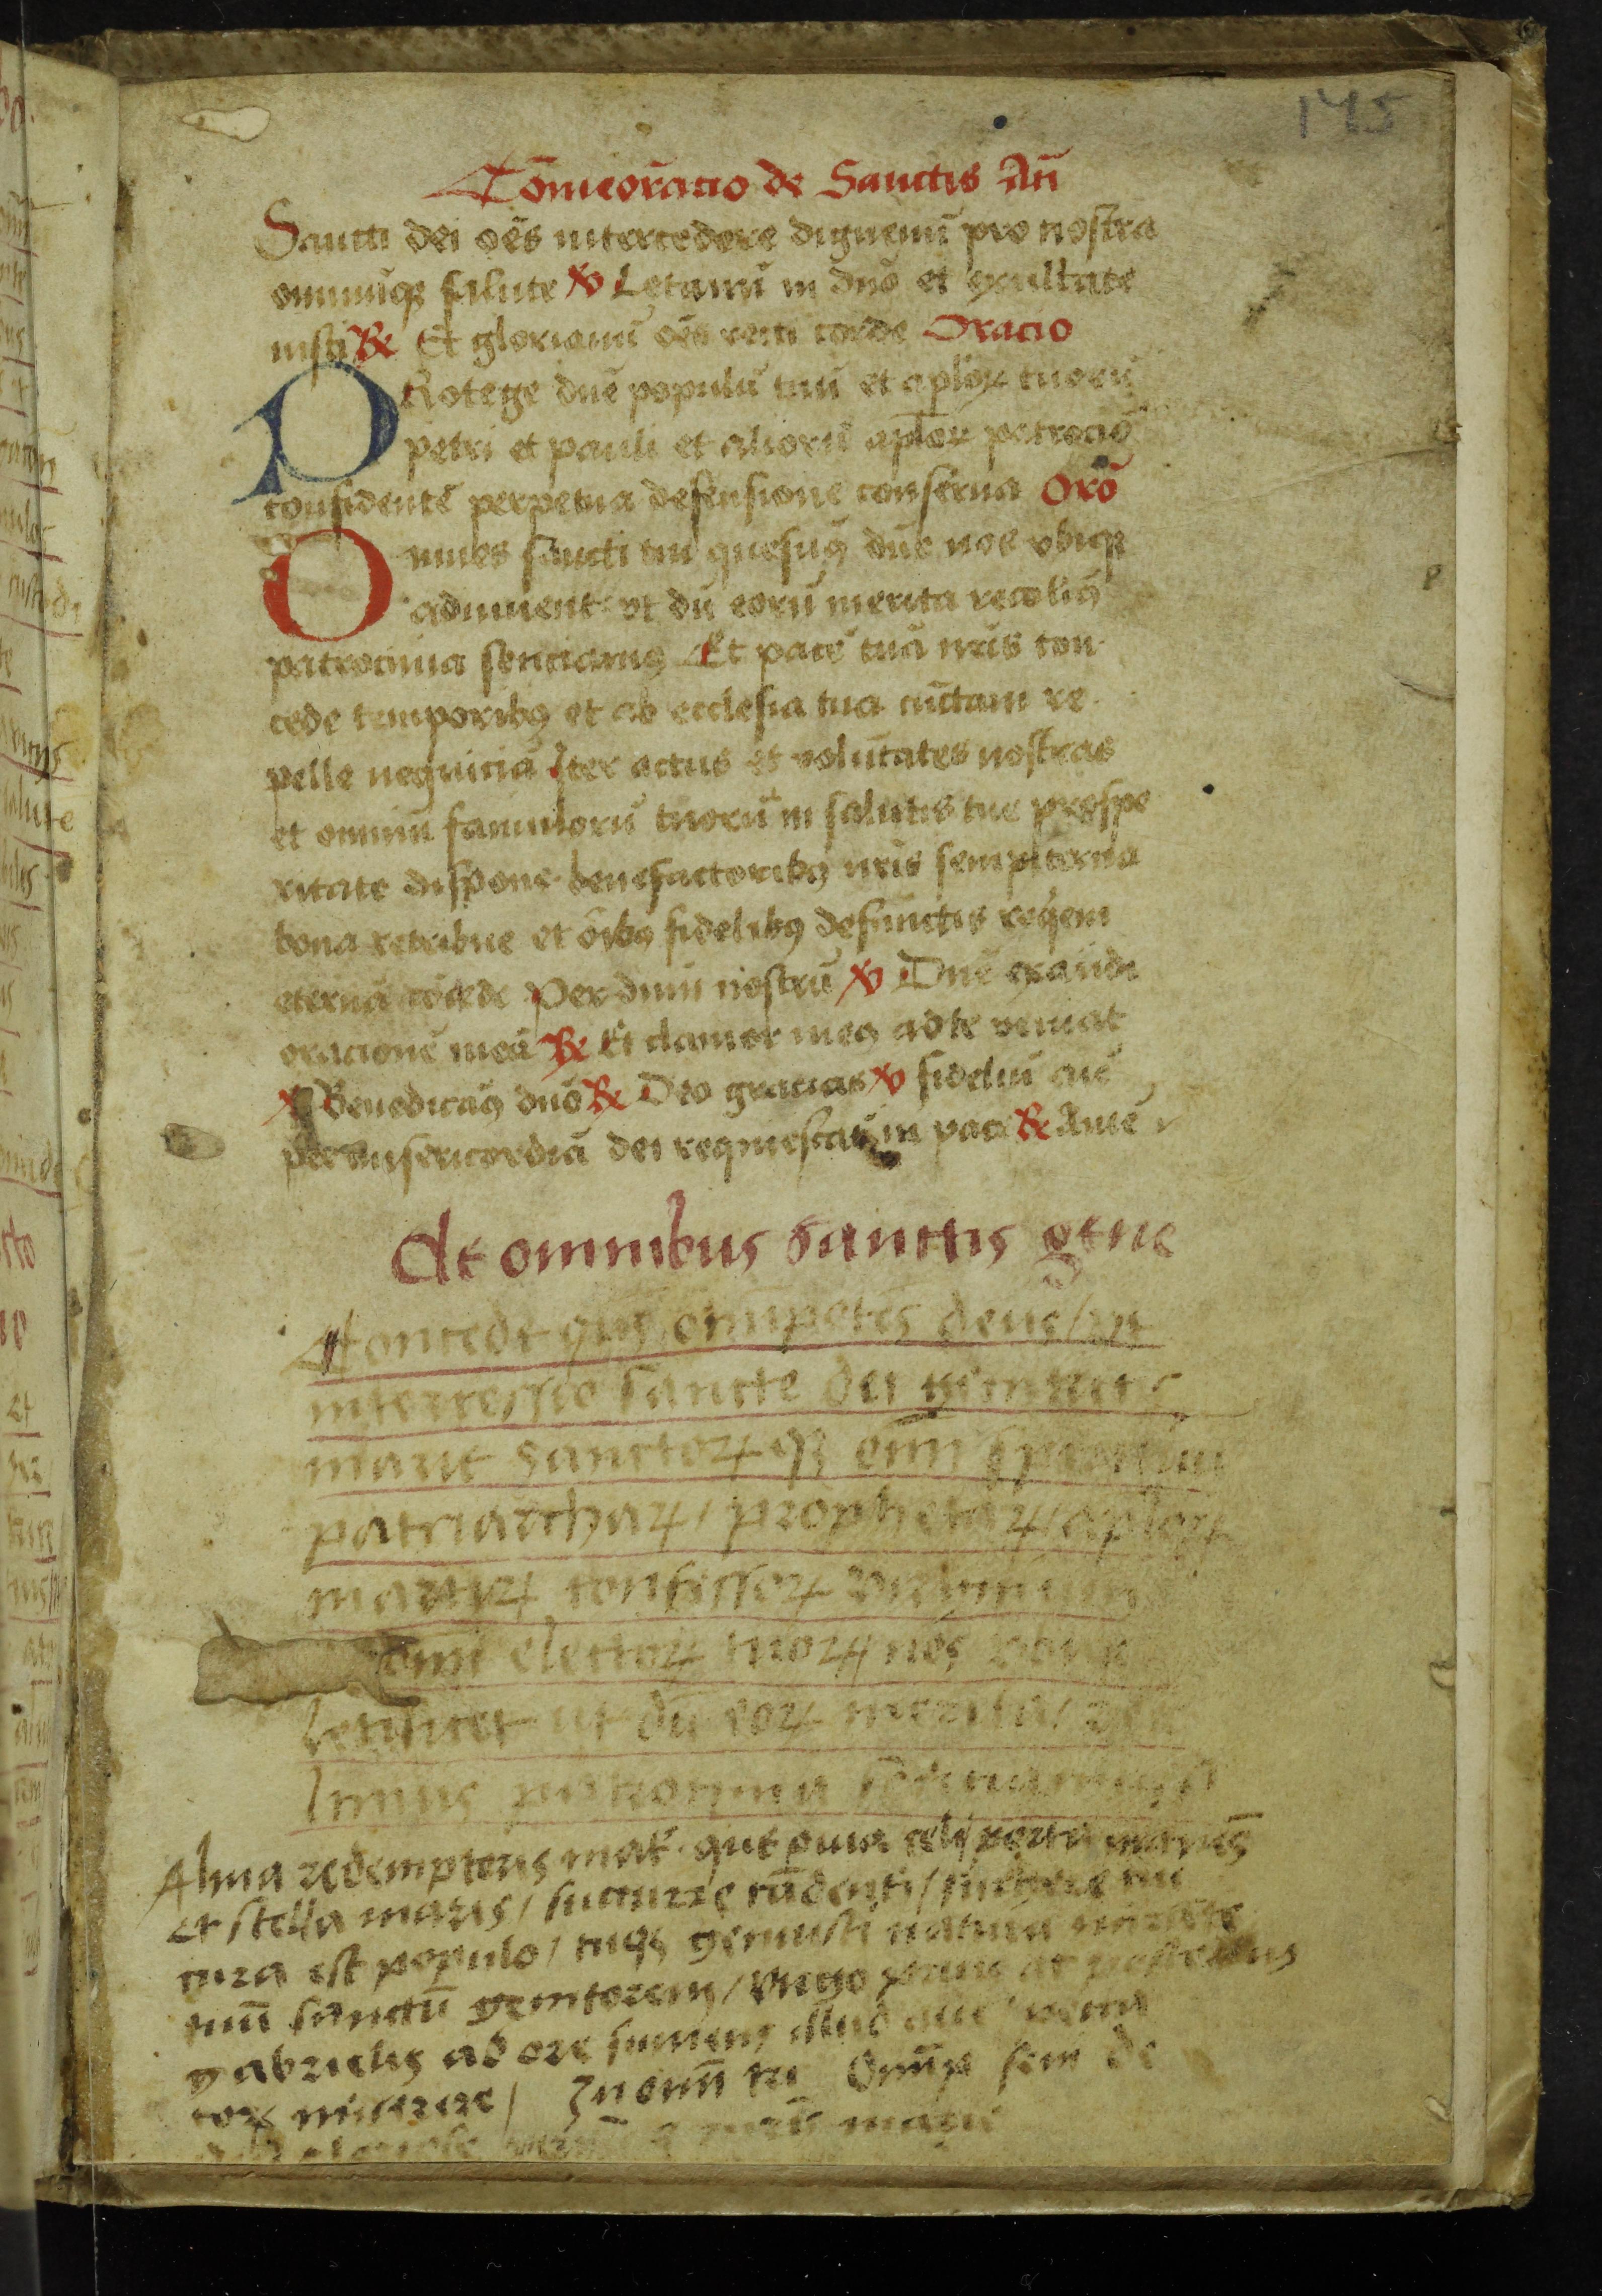 145
Cōmeoracio de Sanctis Añ
Sancti dei oēs intercedere dignemī pro nostra
omniūqꝫ salute ℣ Letamī in dnō et exultate
iusti ℟ Et gloriamī oēs recti corde Oracio
PRotege dnē populū tuū et aplōꝝ tuorū
petri et pauli et aliorū aplōꝝ patrociō
confidentē perpetua defensione conserua Orō
Omnes sancti tui quesuꝯ dnē nos vbiqꝫ
adiuuent vt dū eorū merita recoliꝯ
patrocinia senciamꝯ Et pacē tuā nr̄is con
cede temporibꝯ et ab ecclesia tua cūctam re
pelle nequiciā Iter actus et volūtates nostras
et omniū famulorū tuorū in salutis tue prospe
ritate dispone benefactoribꝯ nr̄is sempiterna
bona retribue et oībꝯ fidelibꝯ defunctis reqem
eternā cōcede Per dnm̄ nostrū ℣ Dnē exaudi
oracionē meā ℟ Et clamor meꝯ ad te veniat
℣ Benedicaꝯ dnō ℟ Deo gracias ℣ fideliū aīe
per misericordiā dei requiescāt in pace ℟ Amē
de omnibus sanctis gene
Concede qs̄ om̄ipotēs deus / vt
intercessio sancte dei genitricis
marie sanctoꝝqꝫ om̄i
patriarchaꝝ / prophetaꝝ / aplōꝝ
martirꝝ confessoꝝ virginum
om̄i electoꝝ tuoꝝ nos vbiqꝫ
letificet ut dū eoꝝ merita / reco
limus patrocinia senciamus
Alma redemptoris mat̄ que puia celi porta manēs
Et stella maris / succurre cādenti / surgere qui
curat populo / tuqꝫ genuisti natura mirāte
tuū sanctū genitorem / virgo prius ac posterius
gabrielis ab ore sumens illud aue pecca
toꝝ miserere /